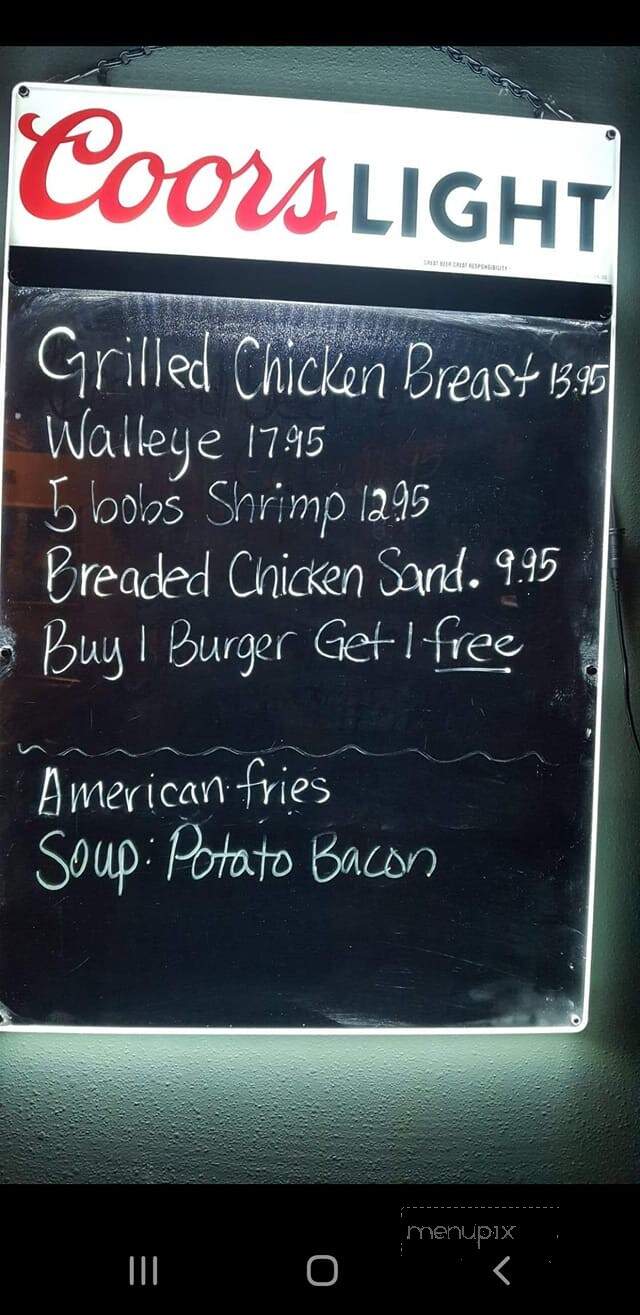 Coors LIGHT
GREAT BEER GREAT RESPONSIBILITY
Grilled Chicken Breast 13.95
Walleye 17.95
5 bobs Shrimp 12.95
Breaded Chicken Sand. 9.95
Buy 1 Burger Get 1 free
American fries
Soup: Potato Bacon
menupix